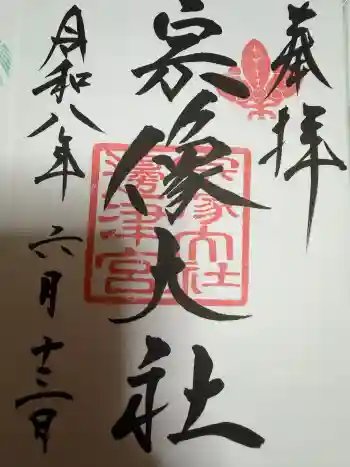 奉拝
宗像大社
宗像大社
邊津宮
令和八年
六月十三日